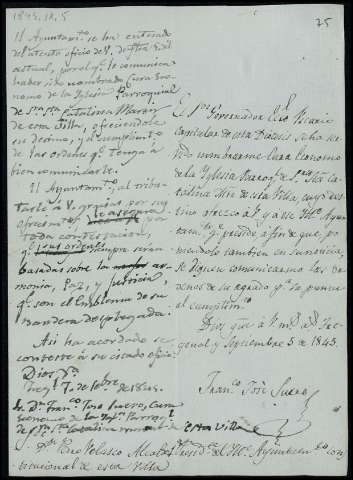 1845.IX.5
25
El Ayuntam.to se ha enterado
del atento oficio de V. de fha 5 del
actual, por el q.e le comunica
haber sido nombrado Cura Eco-
nomo de la Iglesia Parroquial
de S.ta Catalina Martir
de esta Villa, ofreciendole
su destino, y al cumplimiento
de las ordenes q.e tenga á
bien comunicarle.
El Ayuntam.to, al tribu-
tarle á V. gracias por sus
ofrecimientos, le asegura
toda consideracion,
q.e sus ordenes siempre serán
basadas sobre la ar-
monia, Paz, y Justicia,
q.e son el Emblema de su
bandera desplegada.
Asi ha acordado se
conteste á su citado oficio.
Dios &.a
Freg.l 7 de 7bre de 1845.
Sr. D.n Fran.co Jose Suero, Cura
Economo de la Igl.a Parroq.l
de S.ta Catalina de esta Villa
El Sr. Gobernador Ecco. Vicario
Capitular de esta Diocesis se ha ser-
vido nombrarme Cura Economo
de la Yglesia Parroq.l de Sta. Ca-
talina Mtir de esta Villa, cuyo des-
tino ofrezco á V. y á ese Ylt.e Ayun-
tam.to q.e preside á fin de que, po-
niendolo tambien en su noticia,
se dignen comunicarme las or-
denes de su agrado p.a su puntu-
al cumplim.to
Dios gue. á V. m.s a.s Fre-
genal y Septiembre 5 de 1845.
Fran.co José Suero
Sr. D.n Velasco Alcalde Presid.te del Ylt.e Ayuntam.to Con-
stitucional de esta Villa